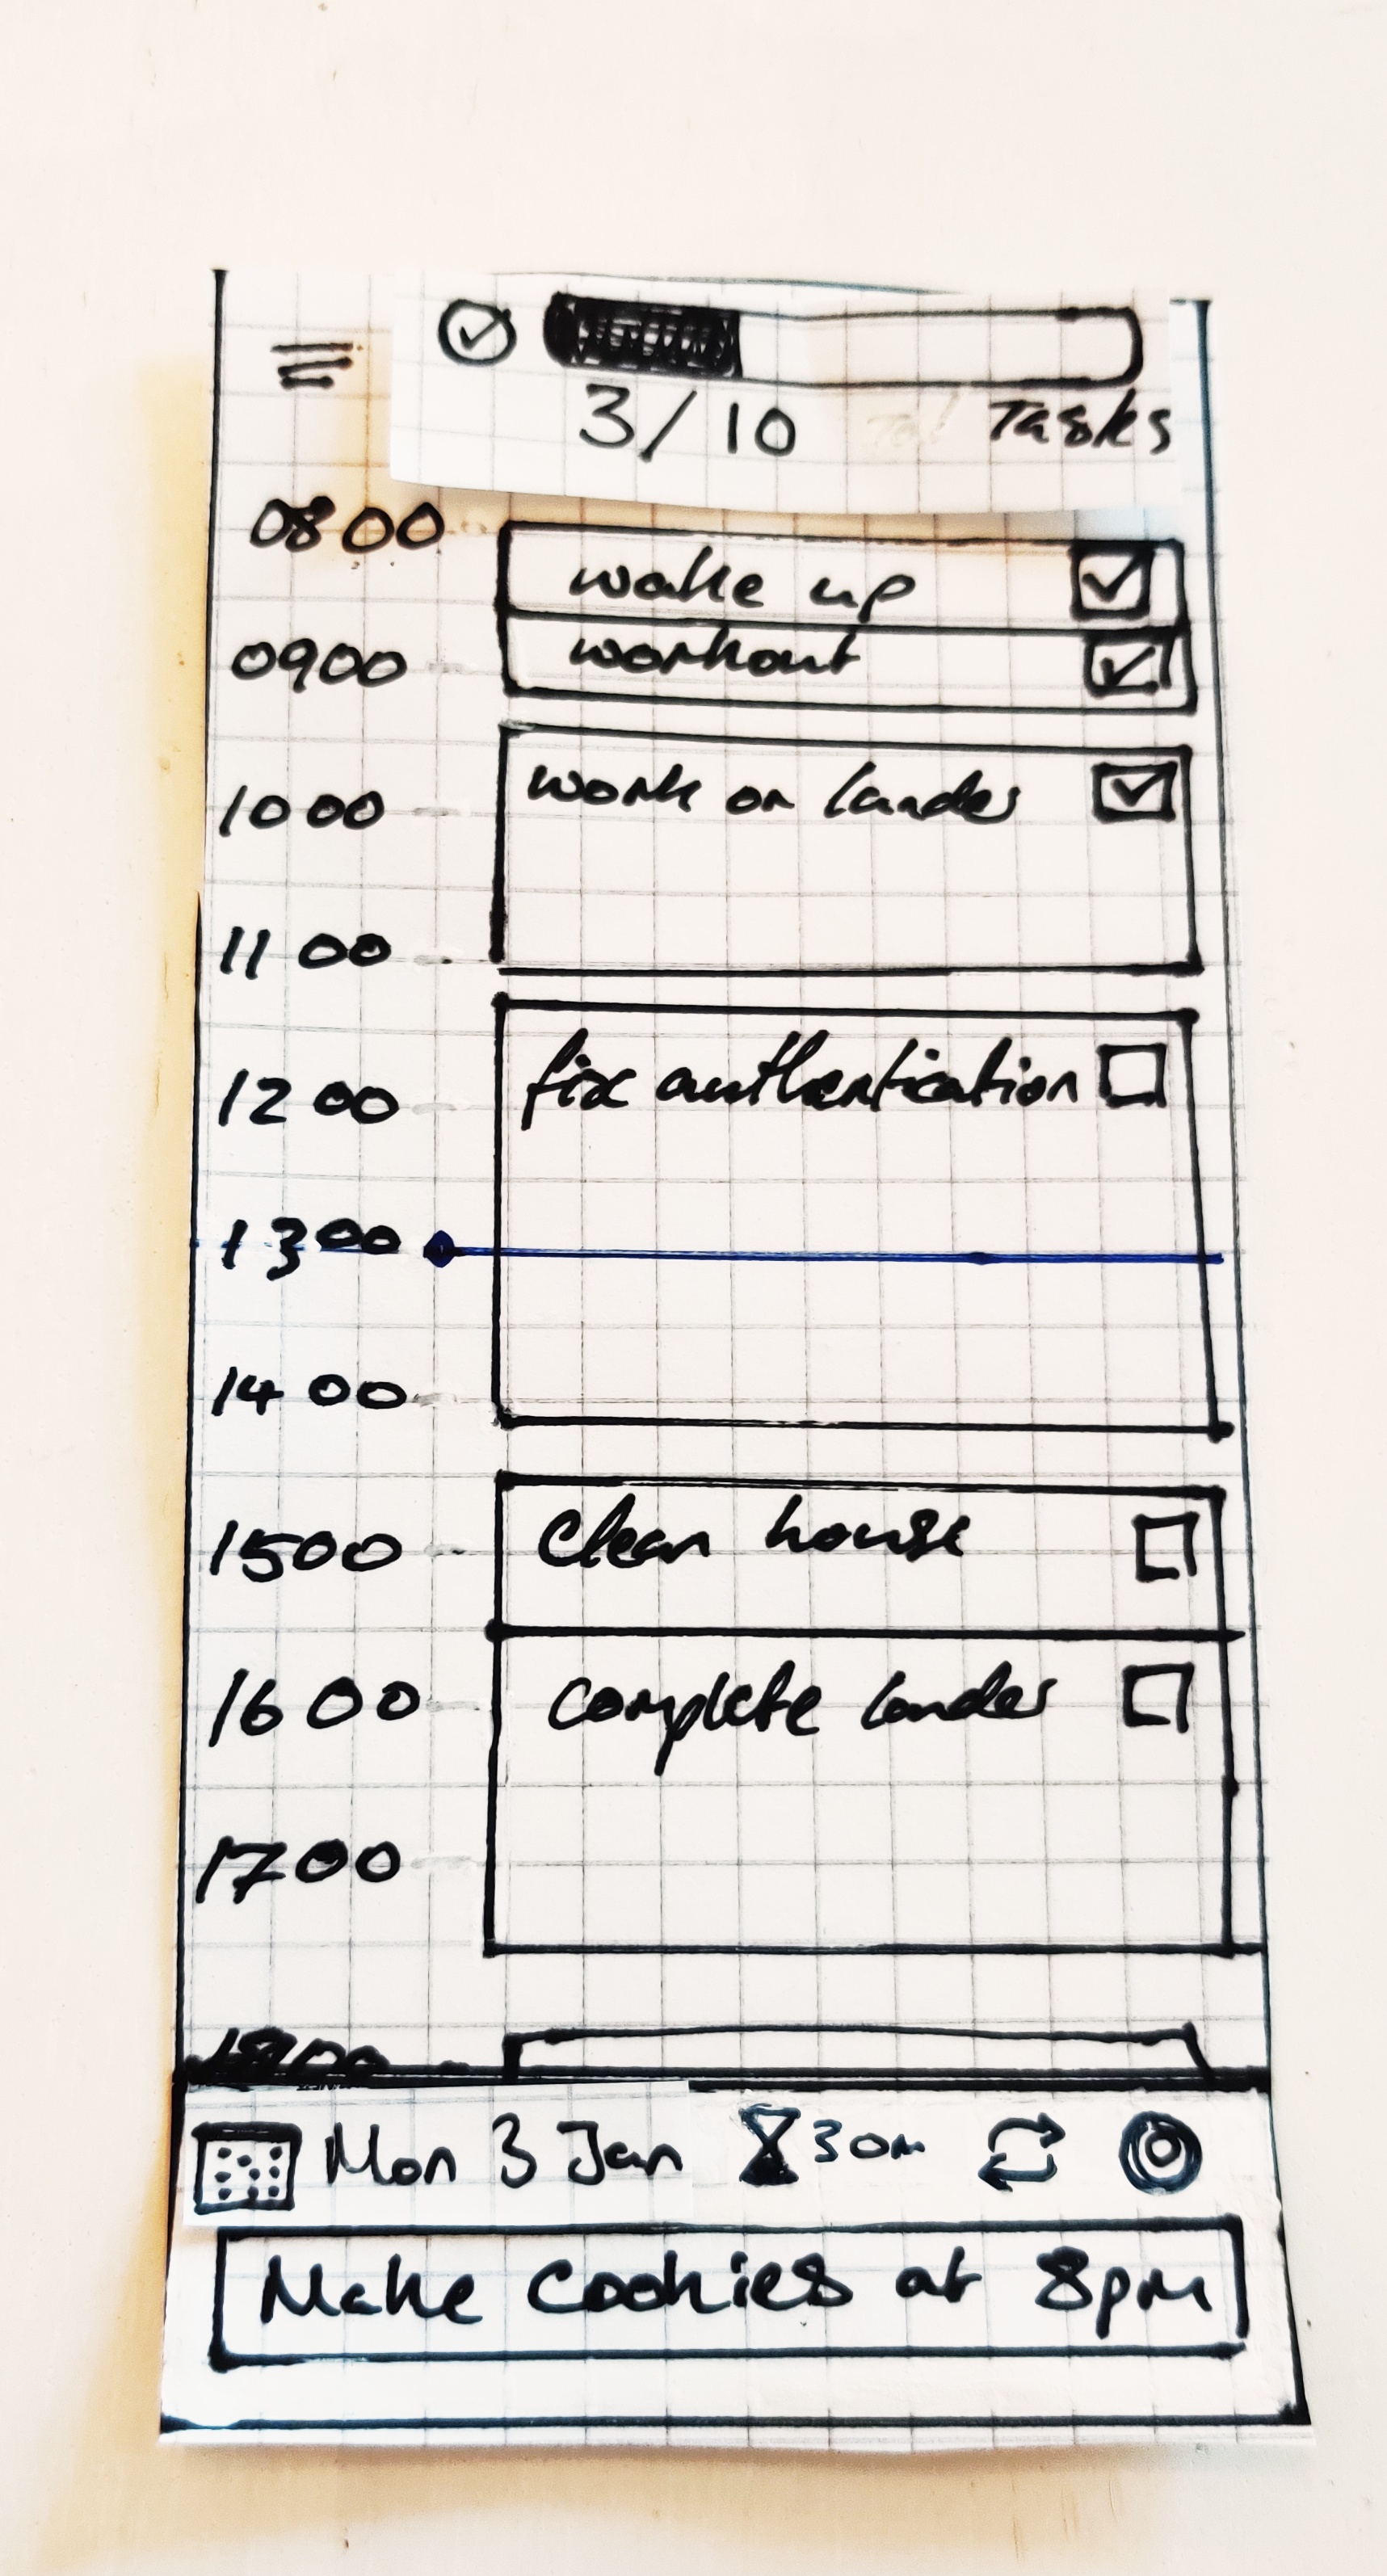 3/10 Tasks
0800
wake up
0900
workout
1000
work on lander
1100
1200
fix authentication
1300
1400
1500
Clean house
1600
complete lander
1700
Mon 3 Jan
30m
Make Cookies at 8pm